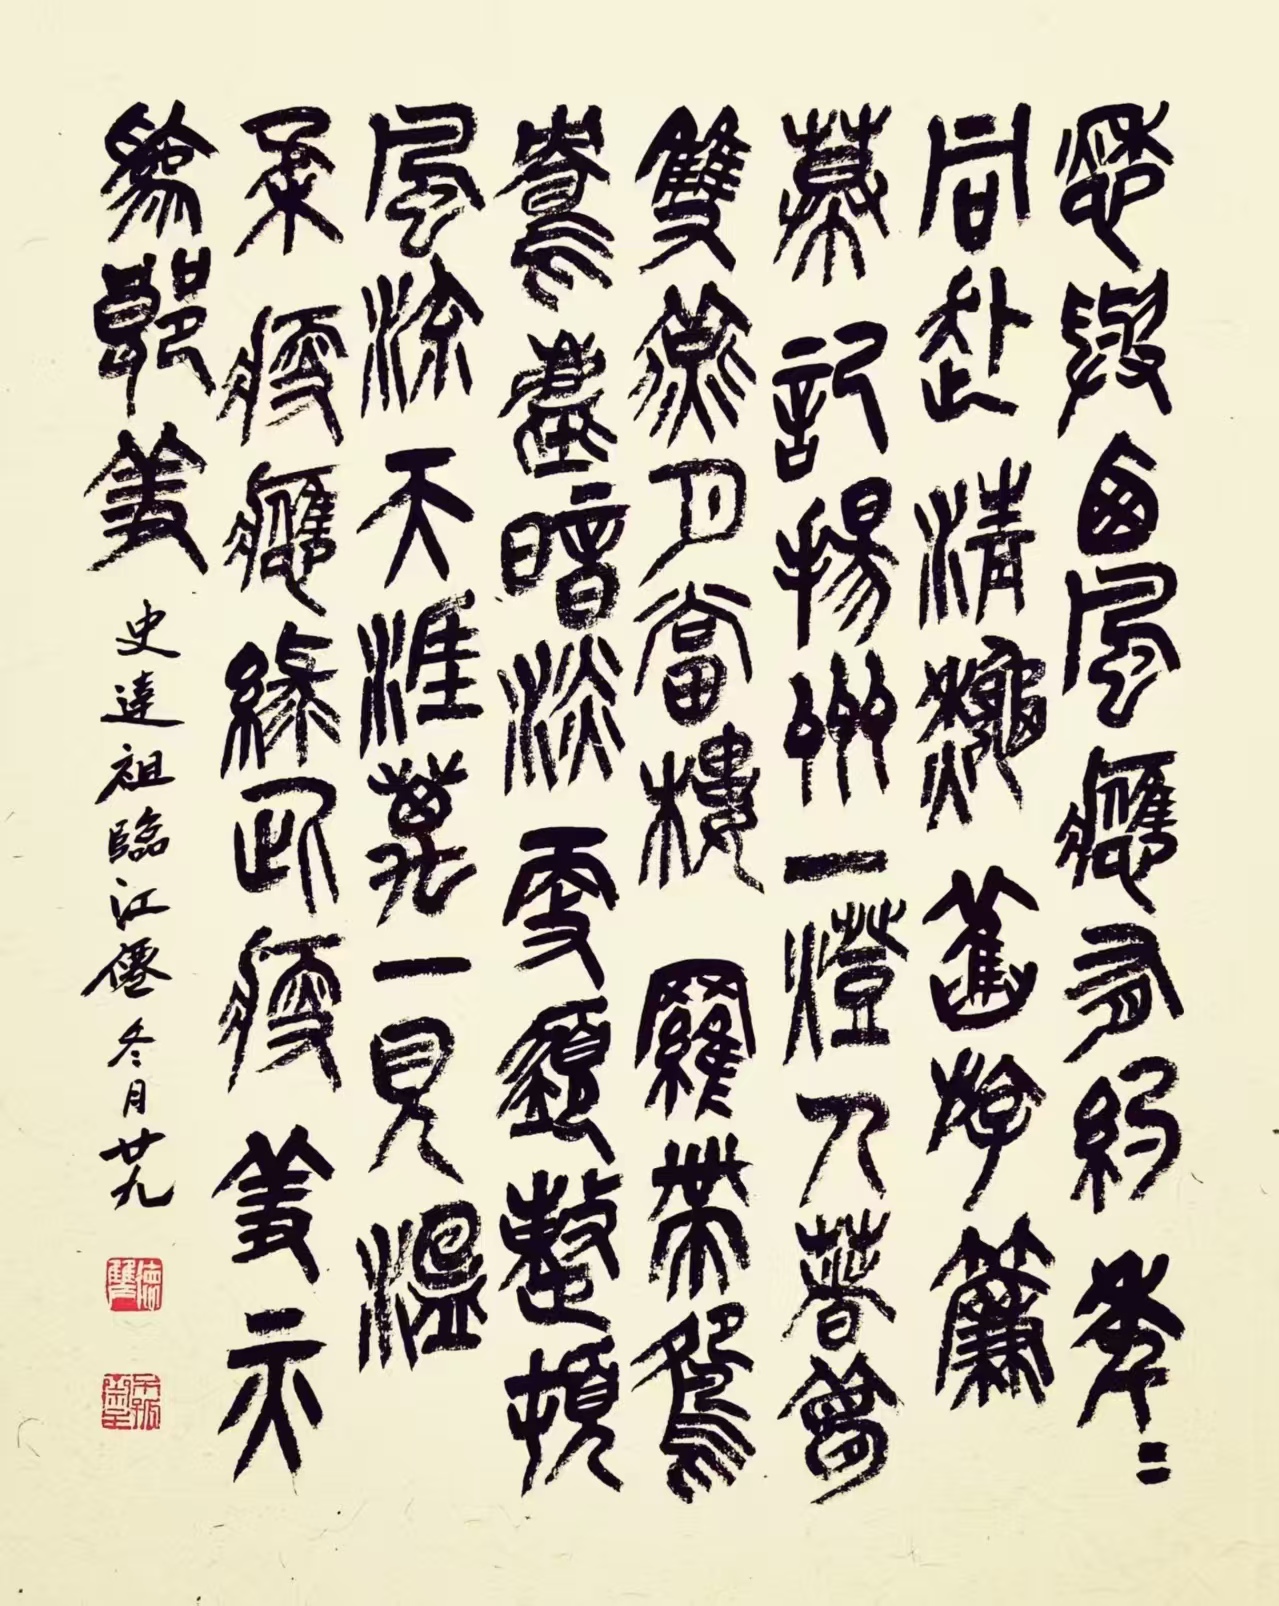 愁與西風應有約年〻
同赴清秋舊游簾
幕記揚州一燈人著夢
雙燕月當樓羅帶鴛
鴦塵暗淡更須整頓
風流天涯萬一見溫
柔瘦應緣此瘦羞亦
為郎羞 史達祖臨江僊 冬月廿九